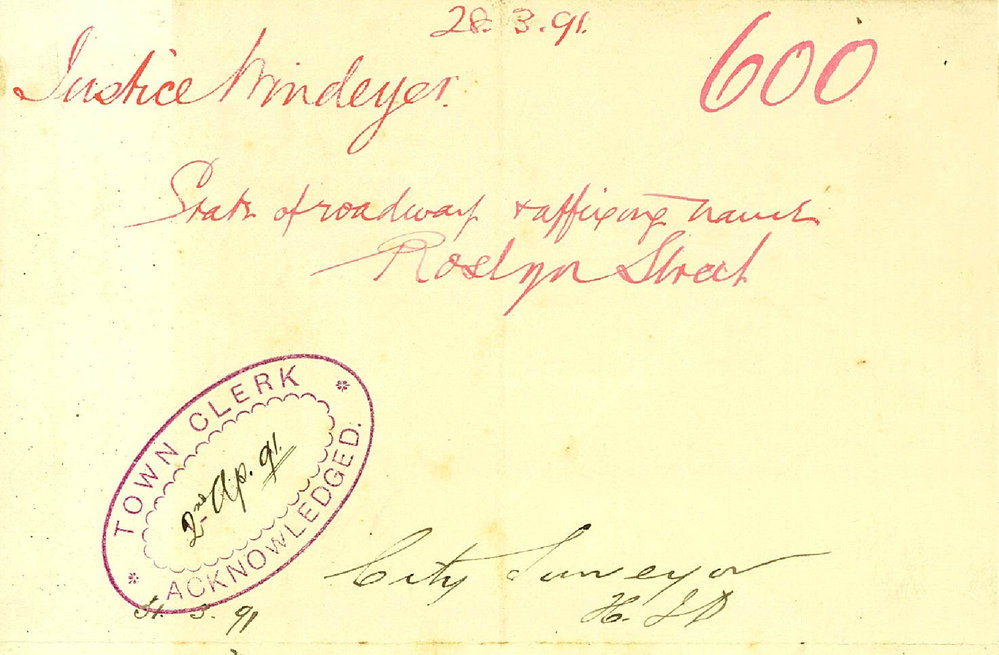 28. 3. 91.
600
Justice Windeyer.
State of roadway & affixing names
Roslyn Street
TOWN CLERK
2nd Ap. 91.
ACKNOWLEDGED.
City Surveyor
31. 3. 91